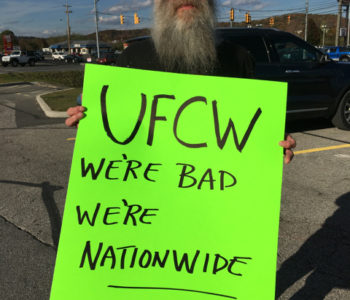 UFCW
WE'RE BAD
WE'RE
NATIONWIDE